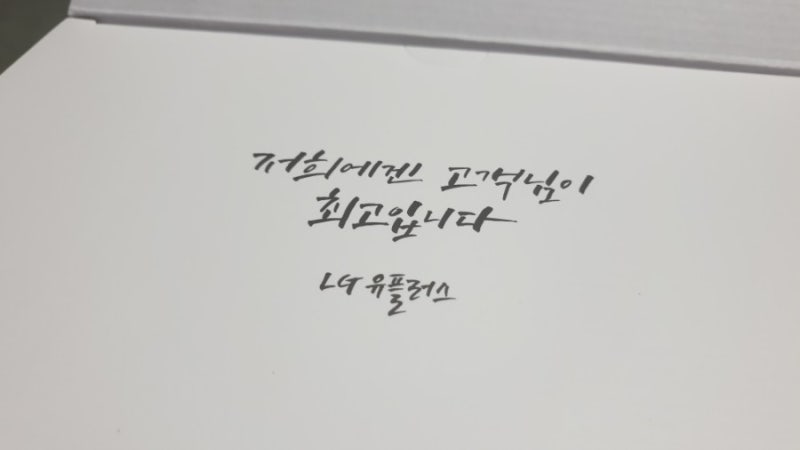 저희에겐 고객님이
최고입니다
LG 유플러스